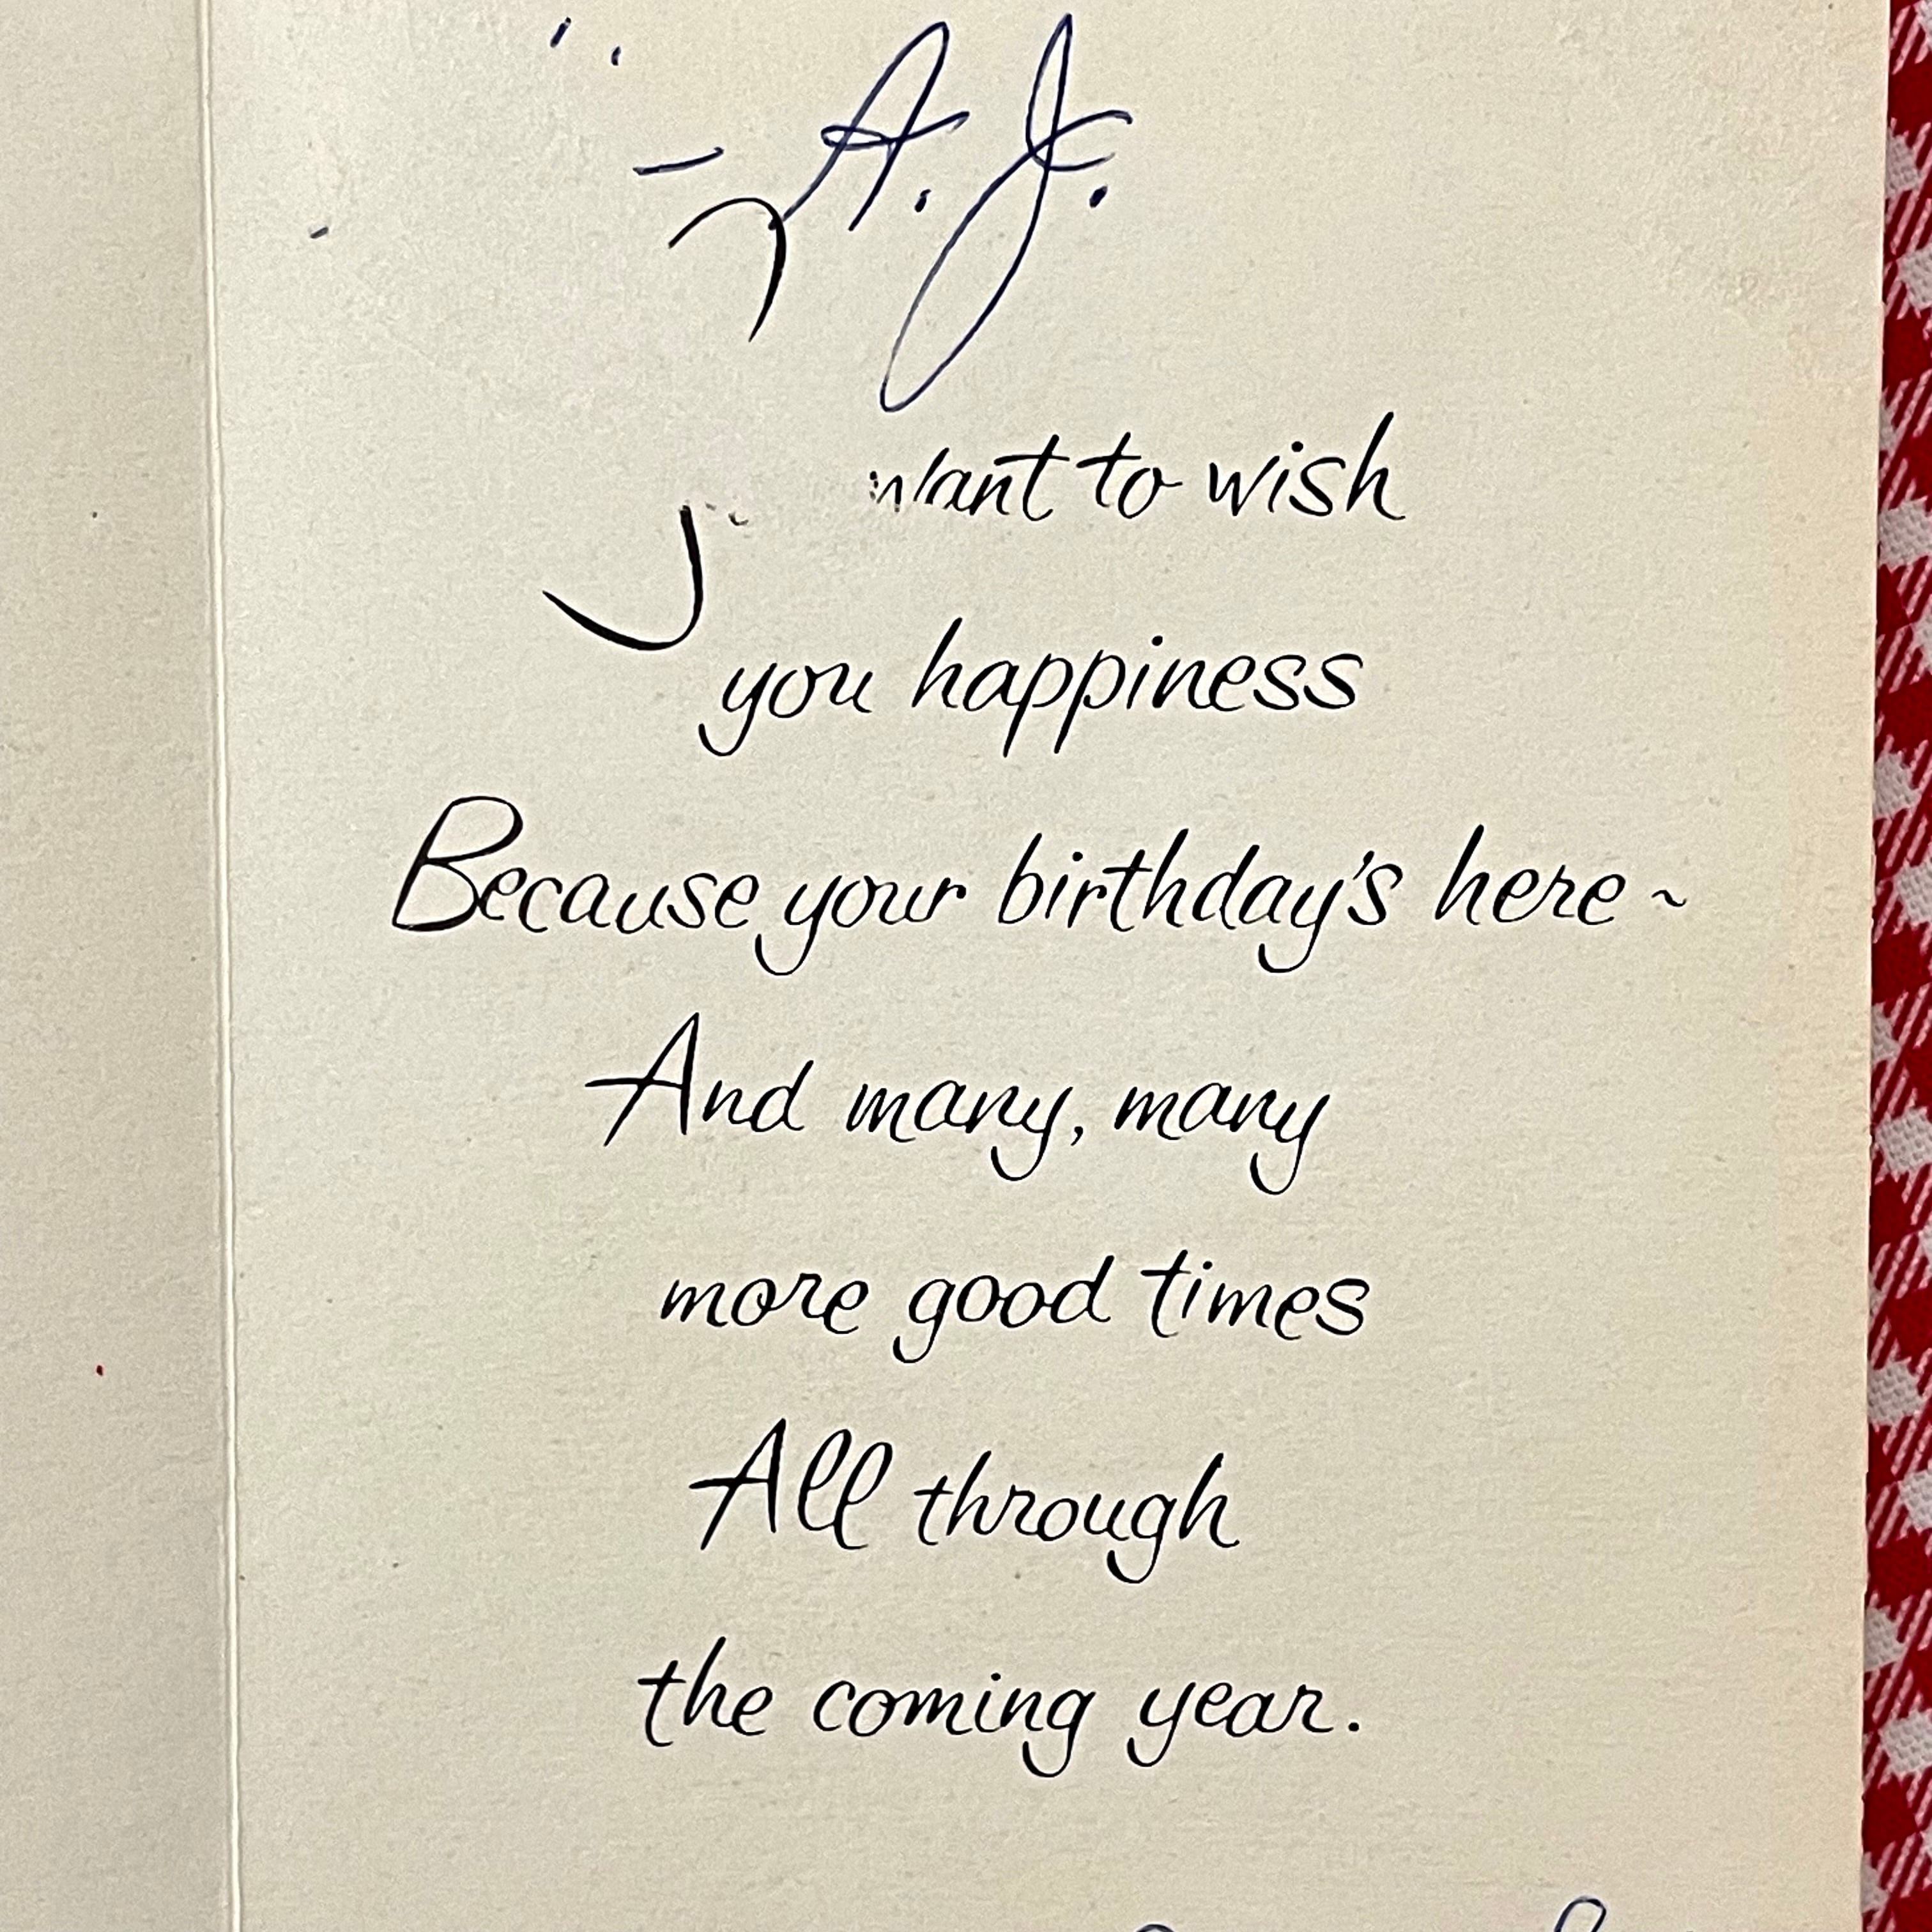 A. J.
want to wish
you happiness
Because your birthday's here ~
And many, many
more good times
All through
the coming year.